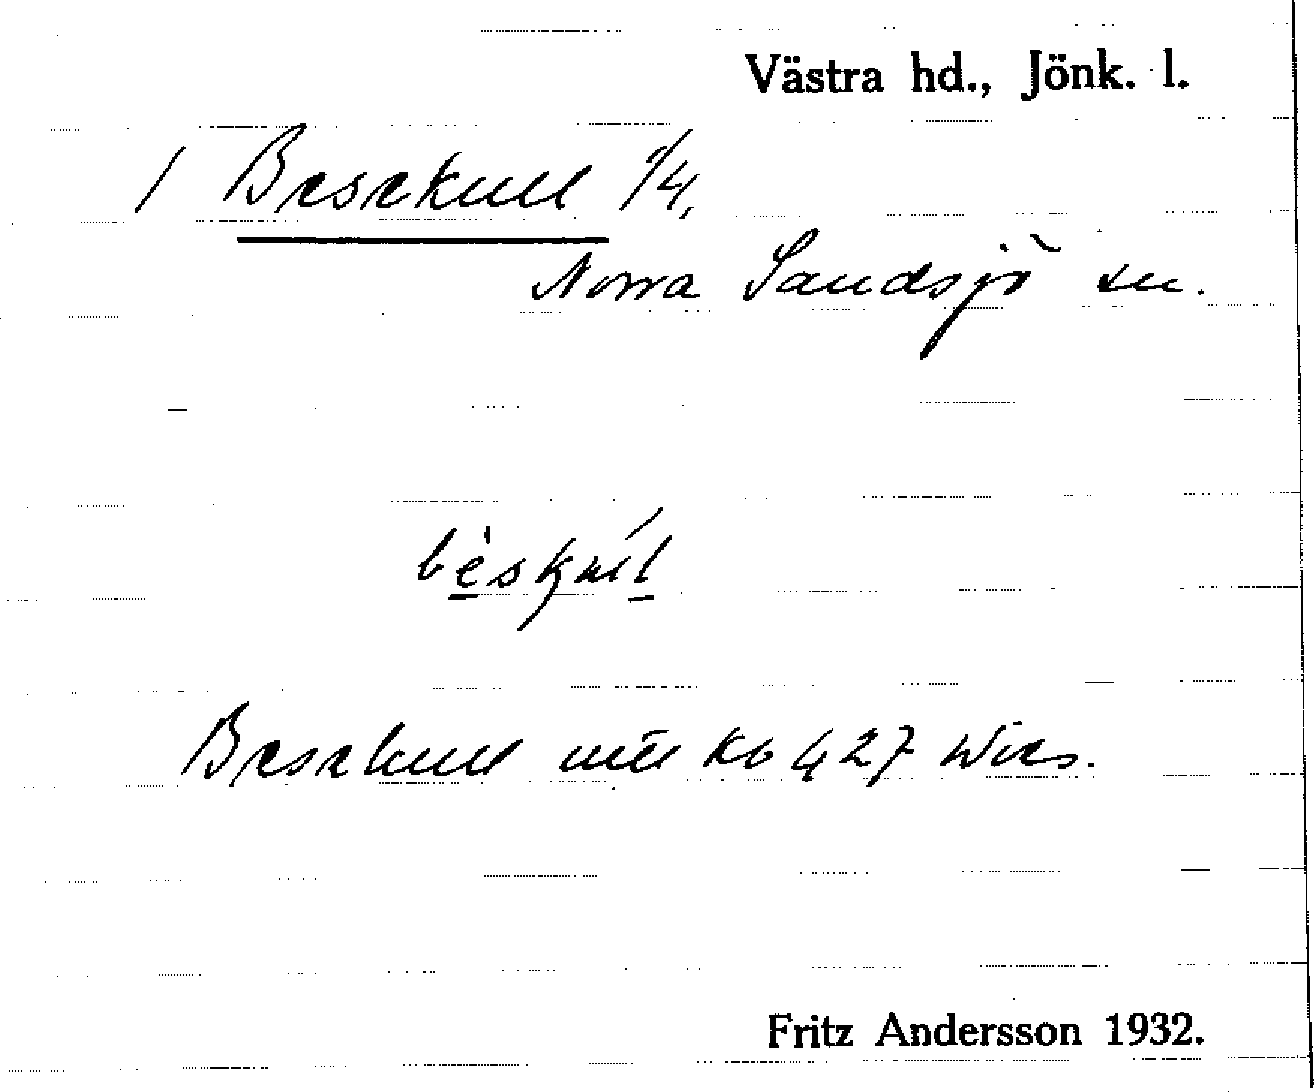 Västra hd., Jönk. l.
1 Besekull 1/4,
Norra Sandsjö sn.
Besekull Kb 427 Wies.
Fritz Andersson 1932.